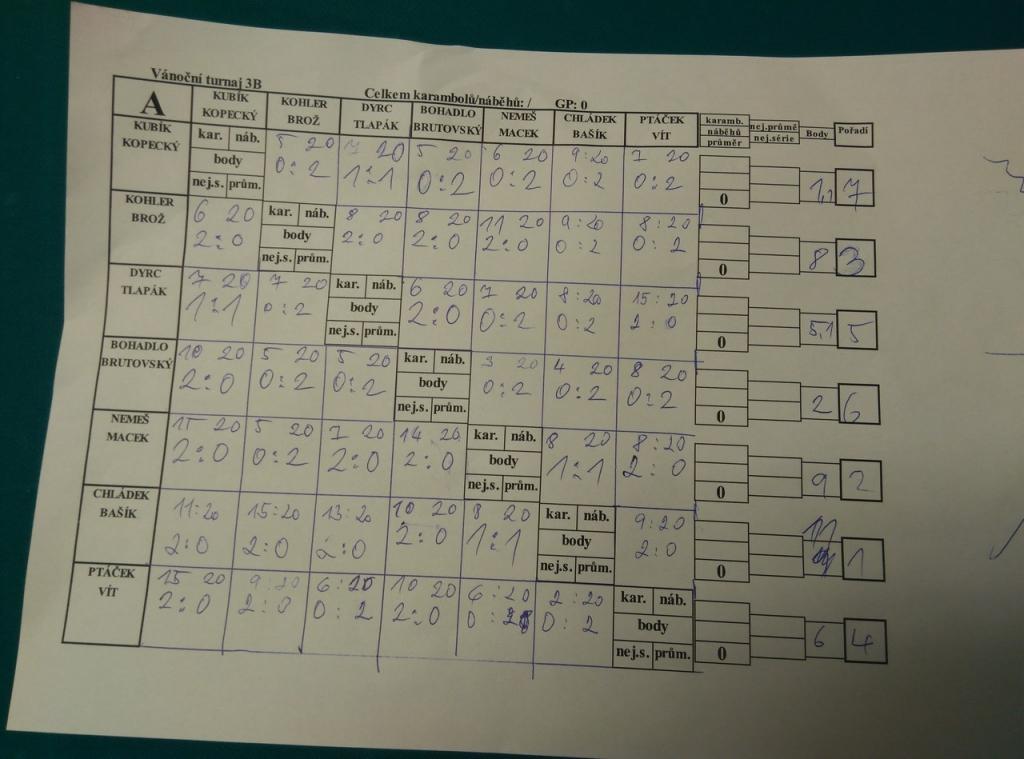 Vánoční turnaj 3B
Celkem karambolů/náběhů: / GP: 0
A KUBÍK KOPECKÝ KOHLER BROŽ DYRC TLAPÁK BOHADLO BRUTOVSKÝ NEMEŠ MACEK CHLÁDEK BAŠÍK PTÁČEK VÍT karamb. náběhů průměr nej.průmě nej.série Body Pořadí
KUBÍK KOPECKÝ
kar. náb. 5 20 7 20 5 20 6 20 9:20 7 20
body 0:2 1:1 0:2 0:2 0:2 0:2
nej.s. prům. 0 7
KOHLER BROŽ
6 20 kar. náb. 8 20 8 20 11 20 9:20 8:20
2:0 body 2:0 2:0 2:0 0:2 0:2
nej.s. prům. 0 8 3
DYRC TLAPÁK
7 20 7 20 kar. náb. 6 20 7 20 8:20 15:20
1:1 0:2 body 2:0 0:2 0:2 2:0
nej.s. prům. 0 5,1 5
BOHADLO BRUTOVSKÝ
10 20 5 20 5 20 kar. náb. 3 20 4 20 8 20
2:0 0:2 0:2 body 0:2 0:2 0:2
nej.s. prům. 0 2 6
NEMEŠ MACEK
15 20 5 20 7 20 14 20 kar. náb. 8 20 8:20
2:0 0:2 2:0 2:0 body 1:1 2:0
nej.s. prům. 0 9 2
CHLÁDEK BAŠÍK
11:20 15:20 13:20 10 20 8 20 kar. náb. 9:20
2:0 2:0 2:0 2:0 1:1 body 2:0
nej.s. prům. 0 11 1
PTÁČEK VÍT
15 20 9:20 6:20 10 20 6:20 2:20 kar. náb.
2:0 2:0 0:2 2:0 0:2 0:2 body
nej.s. prům. 0 6 4